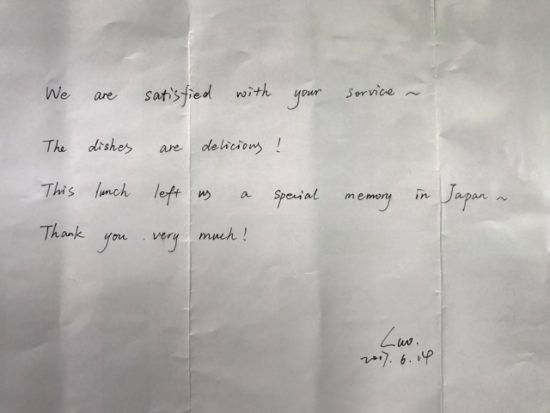 We are satisfied with your service ~
The dishes are delicious!
This lunch left us a special memory in Japan ~
Thank you very much!
Luo.
2017. 6. 14